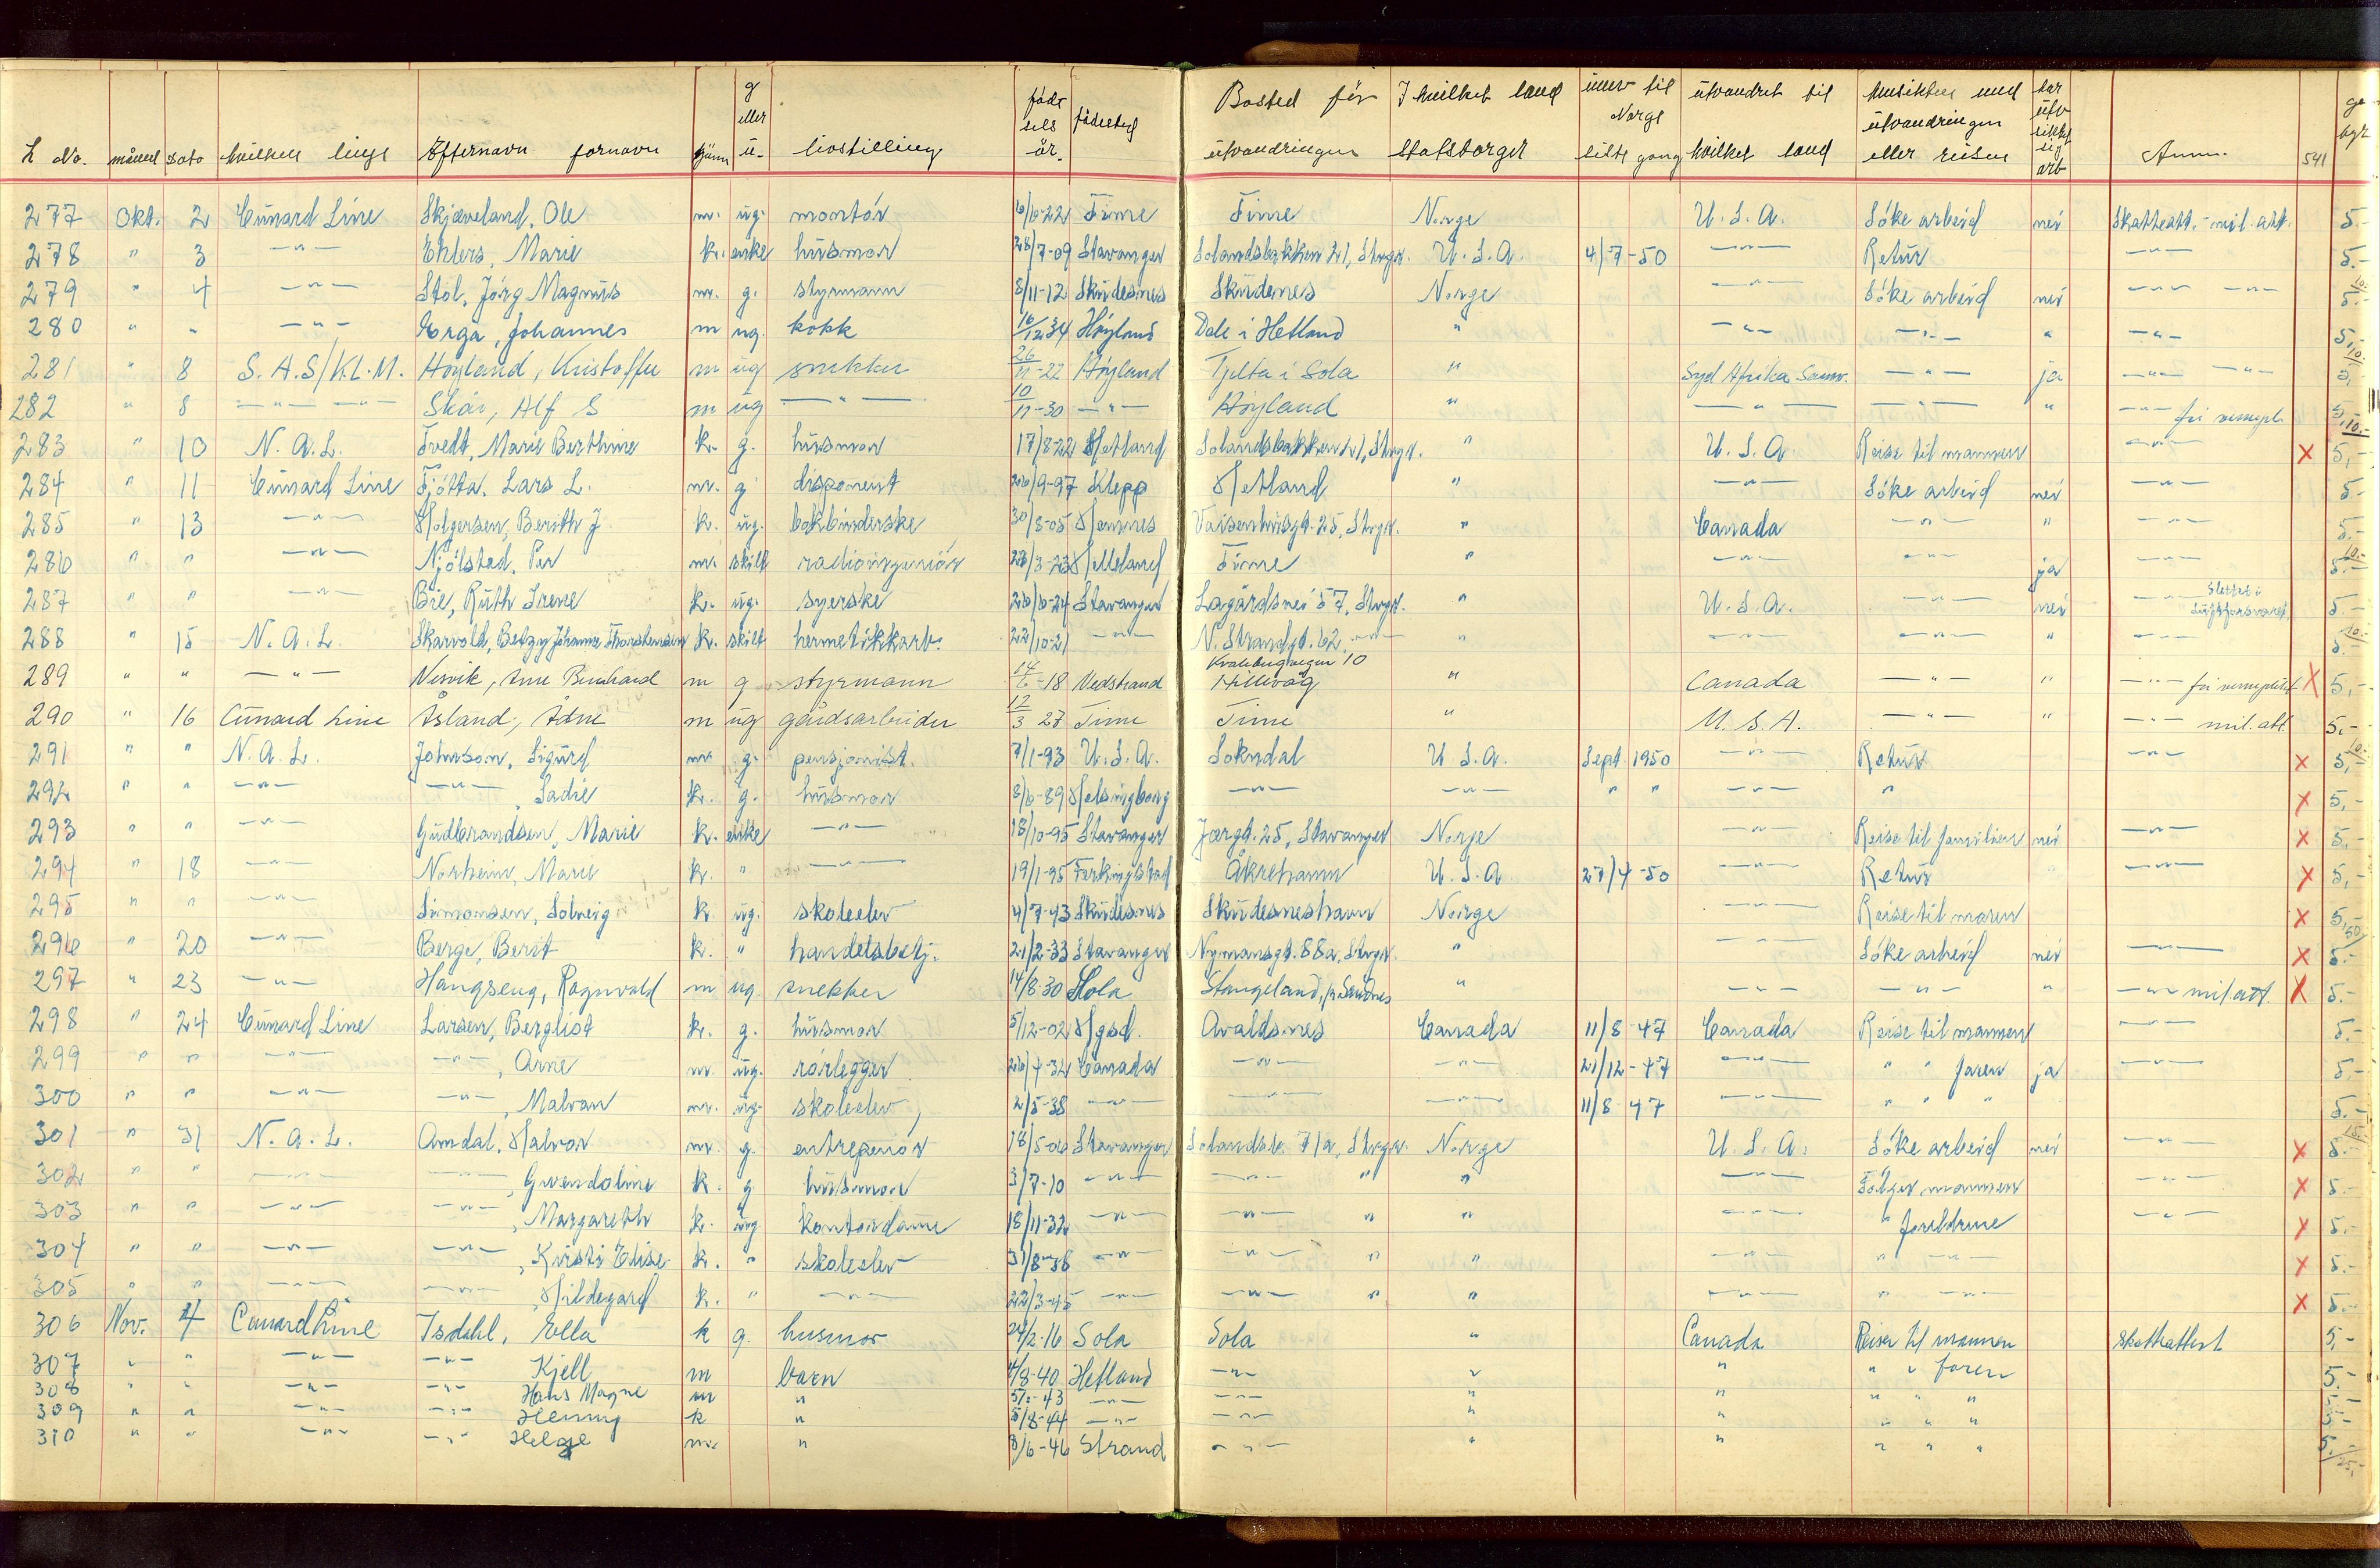 L No. måned Dato hvilken linje Efternavn fornavn kjønn g eller u- livsstilling født sels år. fødested Bosted før utvandringen I hvilket land statsborger innv til Norge siste gang utvandret til hvilket land hensikten med utvandringen eller reisen har utv sikket sig arb Anm. 541 ge byr
277 Okt. 2 Cunard Line Skjæveland, Ole m. ug. montör 6/6-22 Time Time Norge U.S.A. Söke arbeid nei Skatteatt. - mil. att. 5.-
278 " 3 -"- Ehlers, Marie k. enke husmor 28/7-09 Stavanger Solandsbakken 21, Stvgr. U.S.A. 4/7-50 -"- Retur -"- 5.-
279 " 4 -"- Stöl, Jörg Magnus m. g. styrmann 8/11-12 Skudesnes Skudenes Norge -"- Söke arbeid nei -"- -"- 5.- 10.-
280 " " -"- Erga, Johannes m ug. kokk 16/12 34 Höyland Dale i Hetland " -"- -"- " -"- 5,-
281 " 8 S.A.S/K.L.M. Høyland, Kristoffer m ug snekker 26/11-22 Høyland Tjelta i Sola " Syd Afrika Samv. -"- ja -"- -"- 5,- 10.-
282 " 8 -"- -"- Skår, Alf S m ug -"- 10/11-30 -"- Høyland " -"- -"- " -"- fri vernepl. 5,- 10.-
283 " 10 N.A.L. Tvedt, Marie Berthine k. g. husmor 17/8-22 Hetland Solandsbakken 21, Stvgr. " U.S.A. Reise til mannen -"- x 5,-
284 " 11 Cunard Line Tjötta, Lars L. m. g. disponent 26/9-97 Klepp Hetland " -"- Söke arbeid nei -"- 5.-
285 " 13 -"- Holgersen, Berith J. k. ug. bokbinderske 30/8-05 Hemnes Vaisenhusgt. 25, Stvgr. " Canada -"- " -"- 5.-
286 " " -"- Njölstad, Per m. skilt radioingeniör 28/3-23 Helleland Time " -"- -"- ja -"- 5.- 10.-
287 " " -"- Bie, Ruth Irene k. ug. syerske 26/6-24 Stavanger Lagårdsvei 57, Stvgr. " U.S.A. -"- nei -"- Slettet i Luftforsvaret. 5.-
288 " 15 N.A.L. Skarvold, Betzy Johanne Thorstensen k. skilt hermetikkarb. 22/10-21 -"- N. Strandgt. 62 -"- " -"- -"- " -"- 5.- 10.-
289 " " -"- Nesvik, Arne Bernhard m g styrmann 14/6-18 Vedstrand Kvalebergveien 10 Hillevåg " Canada -"- " -"- fri verneplikt X 5,-
290 " 16 Cunard Line Åsland, Ådne m ug gårdsarbeider 12/3 27 Time Time " U.S.A. -"- " -"- mil.att. 5.-
291 " " N.A.L. Johnson, Sigurd m. g. pensjonist. 7/1-93 U.S.A. Sokndal U.S.A. Sept. 1950 -"- Retur -"- x 5,- 10.-
292 " " -"- -"-, Sadie k. g. husmor 8/6-89 Helsingborg -"- -"- " " -"- " x 5,-
293 " " -"- Gudbrandsen, Marie k. enke -"- 18/10-95 Stavanger Jærgt. 25, Stavanger Norge -"- Reise til familien nei -"- x 5,-
294 " 18 -"- Norheim, Marie k. " -"- 19/1-95 Ferkingstad Åkrehamn U.S.A. 27/4-50 -"- Retur -"- x 5,-
295 " " -"- Simonsen, Solveig k. ug. skoleelev 4/7-43 Skudesnes Skudesneshavn Norge -"- Reise til moren x 5,- 50
296 " 20 -"- Berge, Berit k. " handelsbetj. 21/2-33 Stavanger Nymansgt. 88a, Stvgr. " -"- Söke arbeid nei -"- x 5.-
297 " 23 -"- Haugseng, Ragnvald m ug. snekker 14/8-30 Sola Stangeland, pr Sandnes " -"- -"- " -"- mil.att. X 5.-
298 " 24 Cunard Line Larsen, Bergliot k. g. husmor 5/12-02 Hgsd. Avaldsnes Canada 11/8-47 Canada Reise til mannen -"- 5.-
299 " " -"- -"-, Arne m. ug. rörlegger 26/4-32 Canada -"- -"- 21/12-47 -"- " " faren ja -"- 5.-
300 " " -"- -"-, Malvan m. ug. skoleelev 2/5-38 -"- -"- -"- 11/8-47 -"- " " " 5.-
301 " 31 N.A.L. Amdal, Halvor m. g. entrepenör 18/5-06 Stavanger Solandsb. 71a, Stvgr. Norge U.S.A. Söke arbeid nei -"- x 5.- 15.-
302 " " -"- -"-, Gwendoline k. g husmor 3/7-10 -"- -"- " " -"- Fölger mannen -"- x 5.-
303 " " -"- -"-, Margareth k. ug. kontordame 18/11-32 -"- -"- " " -"- " foreldrene -"- x 5.-
304 " " -"- -"-, Kristi Elise k. " skoleelev 31/8-38 -"- -"- " " -"- " -"- x 5.-
305 " " -"- -"-, Hildegard k. " -"- 22/3-45 -"- -"- " " -"- " -"- x 5.-
306 Nov. 4 Cunard Line Isdahl, Ella k g. husmor 24/2-16 Sola Sola " Canada Reiser til mannen Skatteattest 5,-
307 " " -"- -"- Kjell m barn 4/8-40 Hetland -"- " " " " faren 5.-
308 " " -"- -"- Hans Magne m " 43 -"- -"- " " " " " 5.-
309 " " -"- -"- Henny k " 5/8-44 -"- -"- " " " " " 5.-
310 " " -"- -"- Helge m. " 8/6-46 Strand -"- " " " " " 5.- 25,-